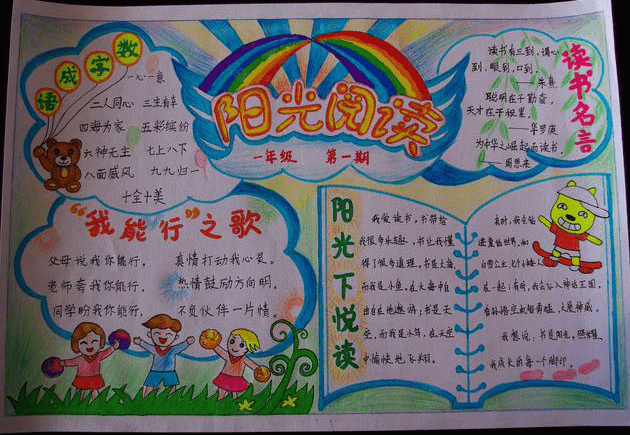 数字成语
一心一意
二人同心 三生有幸
四海为家 五彩缤纷
六神无主 七上八下
八面威风 九九归一
十全十美
阳光阅读
一年级 第一期
读书名言
读书有三到,谓心
到,眼到,口到。
——朱熹
聪明在于勤奋,
天才在于积累。
——华罗庚
为中华之崛起而读书。
——周恩来
"我能行"之歌
父母说我你能行, 真情打动我心灵。
老师夸我你能行, 热情鼓励方向明。
同学盼我你能行, 不负伙伴一片情。
阳光下悦读
我爱读书,书带给
我很多乐趣,书让我懂
得了很多道理。书是大海,
而我是小鱼,在大海中自
由自在地遨游;书是天
空,而我是小鸟,在天空
中愉快地飞翔。
有时,我会
进童话世界,和
白雪公主、七个小矮人
在一起;有时,我会 入神话王国,
看孙悟空
我想说,书是阳光,照耀
我成长的每一个脚印。